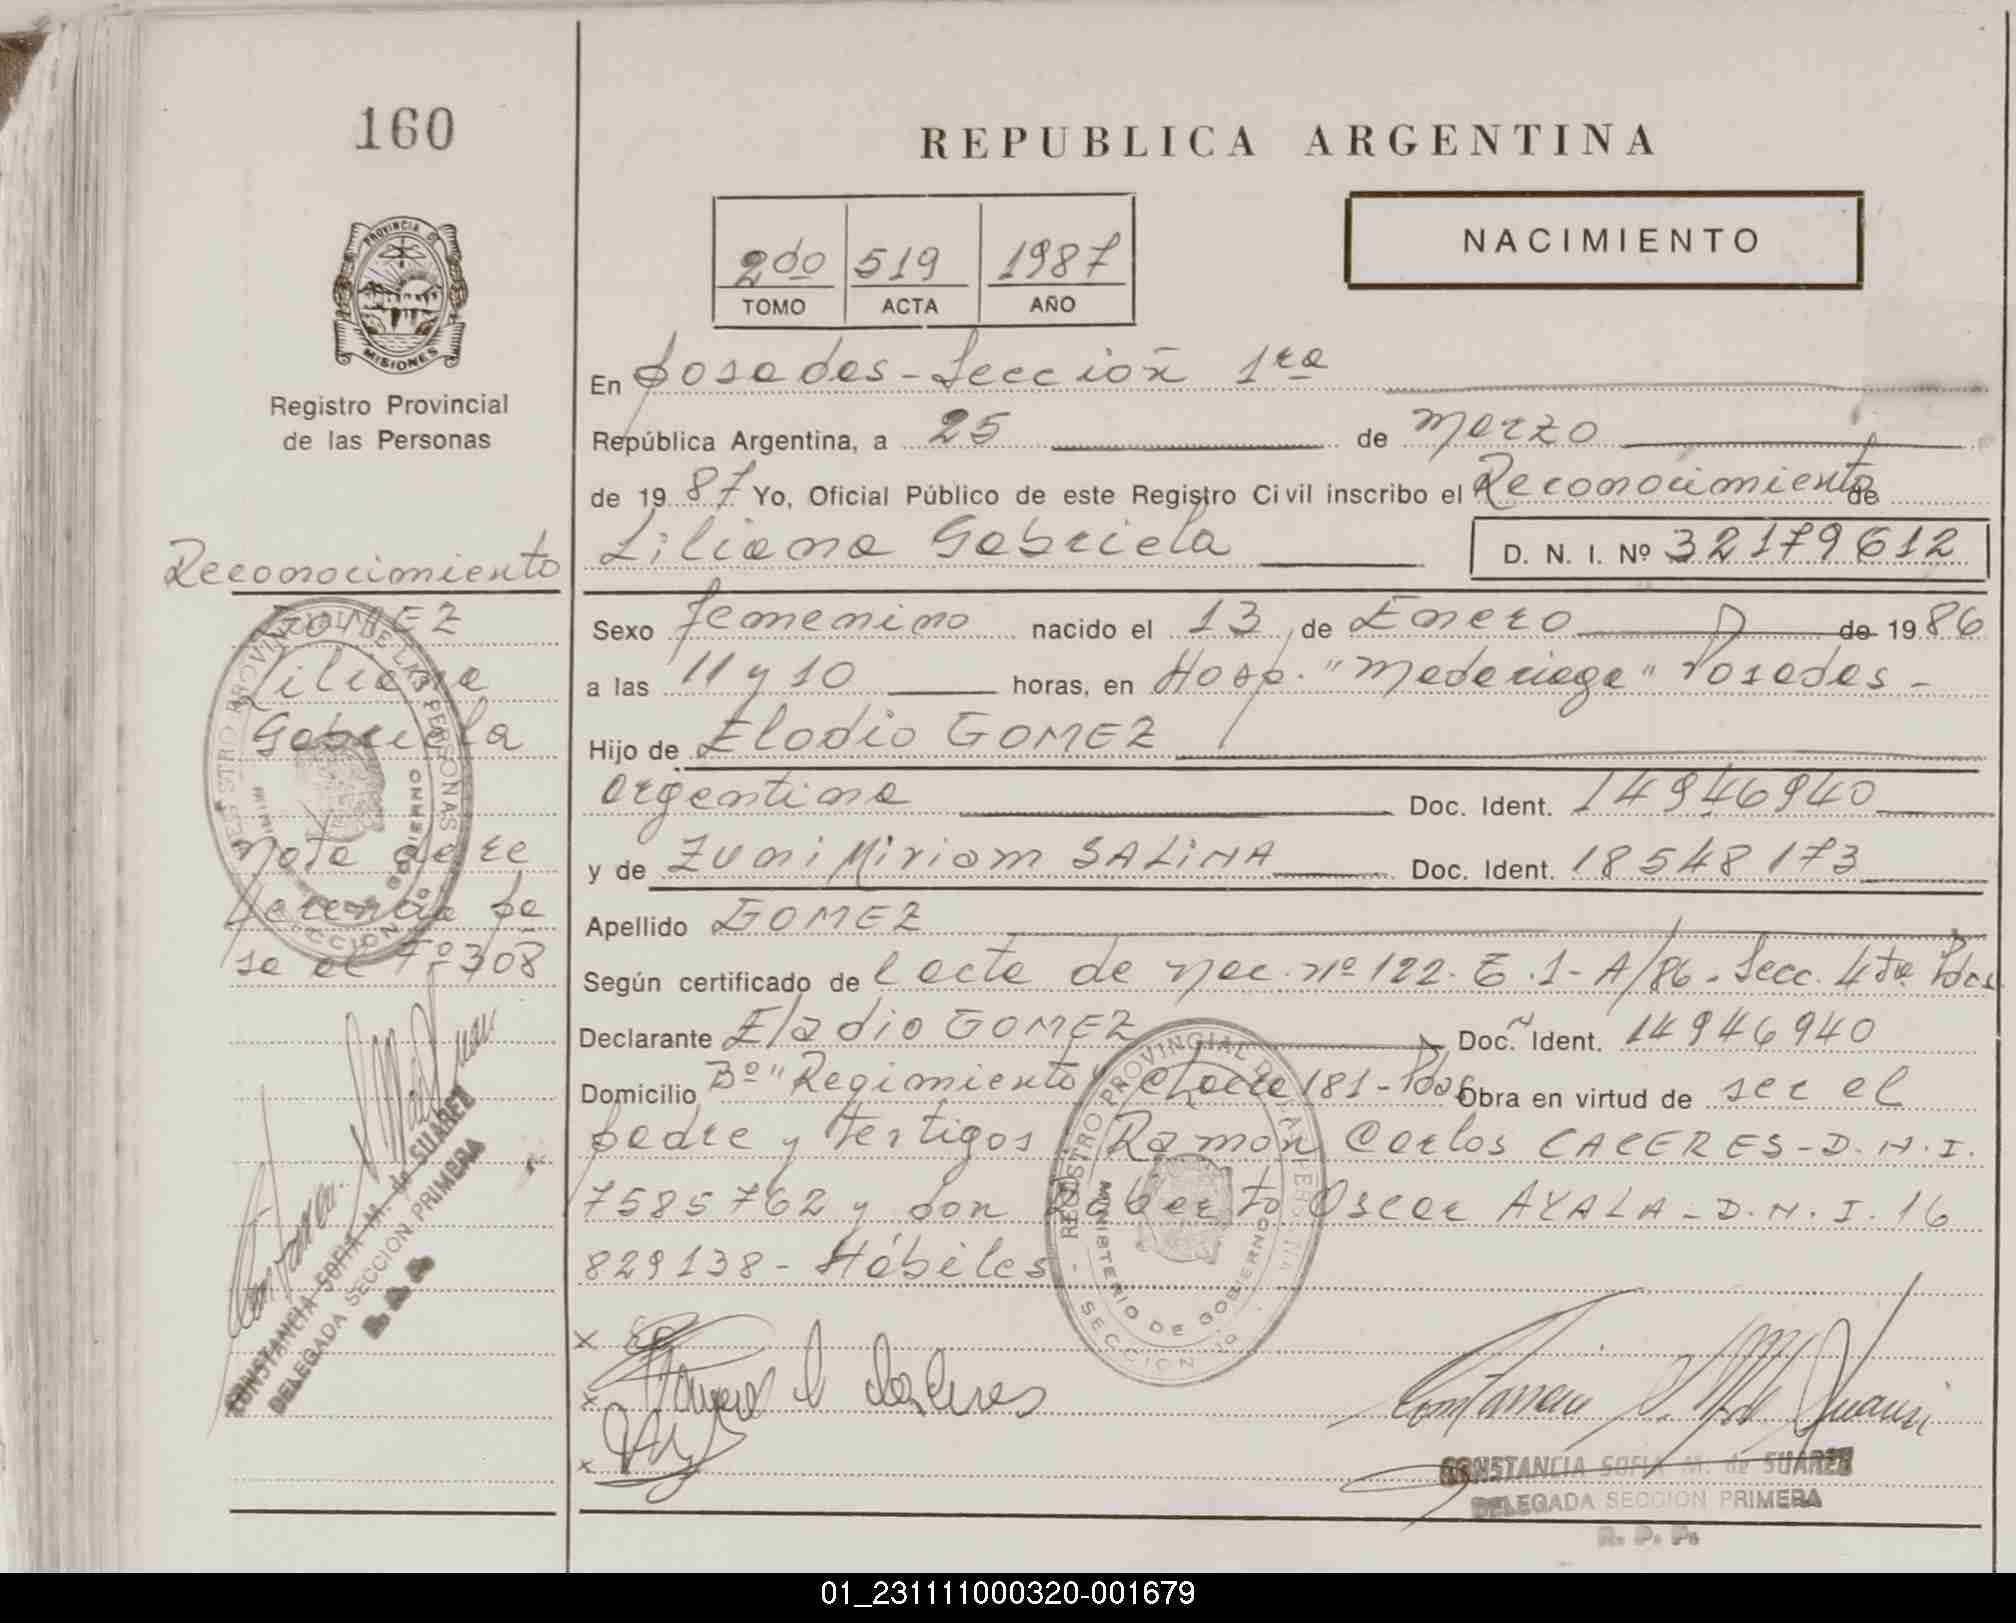 160
REPUBLICA ARGENTINA
NACIMIENTO
2do 519 1987
TOMO ACTA AÑO
PROVINCIA DE
MISIONES
Registro Provincial
de las Personas
En Posadas - Sección 1ra
República Argentina, a 25 de Marzo
de 1987 Yo, Oficial Público de este Registro Civil inscribo el Reconocimiento de
Liliana Gabriela D. N. I. Nº 32179612
Sexo femenino nacido el 13 de Enero de 1986
a las 11 y 10 horas, en Hosp. "Madariaga" Posadas -
Hijo de Elodio GOMEZ
argentina Doc. Ident. 14946940
y de Zuni Miriam SALINA Doc. Ident. 18548173
Apellido GOMEZ
Según certificado de acta de nac. nº 122. T. 1 - A/86 - Secc. 4ta Pdas
Declarante Eladio GOMEZ Doc. Ident. 14946940
Domicilio Bº "Regimiento" chacra 181 - Pdas Obra en virtud de ser el
padre y testigos Ramón Carlos CACERES - D.N.I.
7585762 y don Roberto Oscar AYALA - D.N.I. 16
829138 - Hábiles
REGISTRO PROVINCIAL DE LAS PERSONAS
MINISTERIO DE GOBIERNO
SECCION 1º
CONSTANCIA SOFIA M. de SUAREZ
DELEGADA SECCION PRIMERA
R. P. P.
Reconocimiento
GOMEZ
Liliana
Gabriela
Nota de re
ferencia pa
sa al Fº 308
REGISTRO PROVINCIAL DE LAS PERSONAS
MINISTERIO DE GOBIERNO
SECCION 1º
CONSTANCIA SOFIA M. de SUAREZ
DELEGADA SECCION PRIMERA
01_231111000320-001679